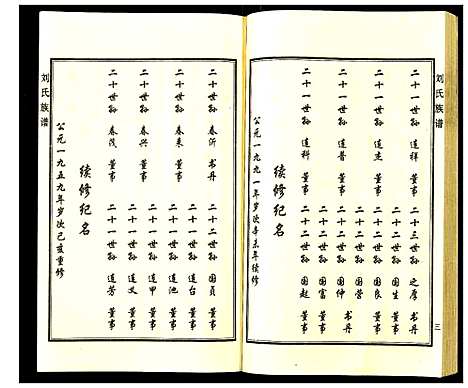 刘氏族谱
二十一世孙 道祥 董事
二十一世孙 道杰 董事
二十一世孙 道普 董事
二十一世孙 道科 董事
二十三世孙 之厚 书丹
二十二世孙 国生 董事
二十二世孙 国良 董事
二十二世孙 国营 董事
二十二世孙 国仲 书丹
二十二世孙 国富 董事
二十二世孙 国起 董事
续修纪名
公元一九九一年岁次辛未年续修
三
刘氏族谱
二十世孙 春沂 书丹
二十世孙 春来 董事
二十世孙 春兴 董事
二十世孙 春茂 董事
二十二世孙 国贞 董事
二十一世孙 道台 董事
二十一世孙 道池 董事
二十一世孙 道甲 董事
二十一世孙 道义 董事
二十一世孙 道芳 董事
续修纪名
公元一九五九年岁次己亥重修